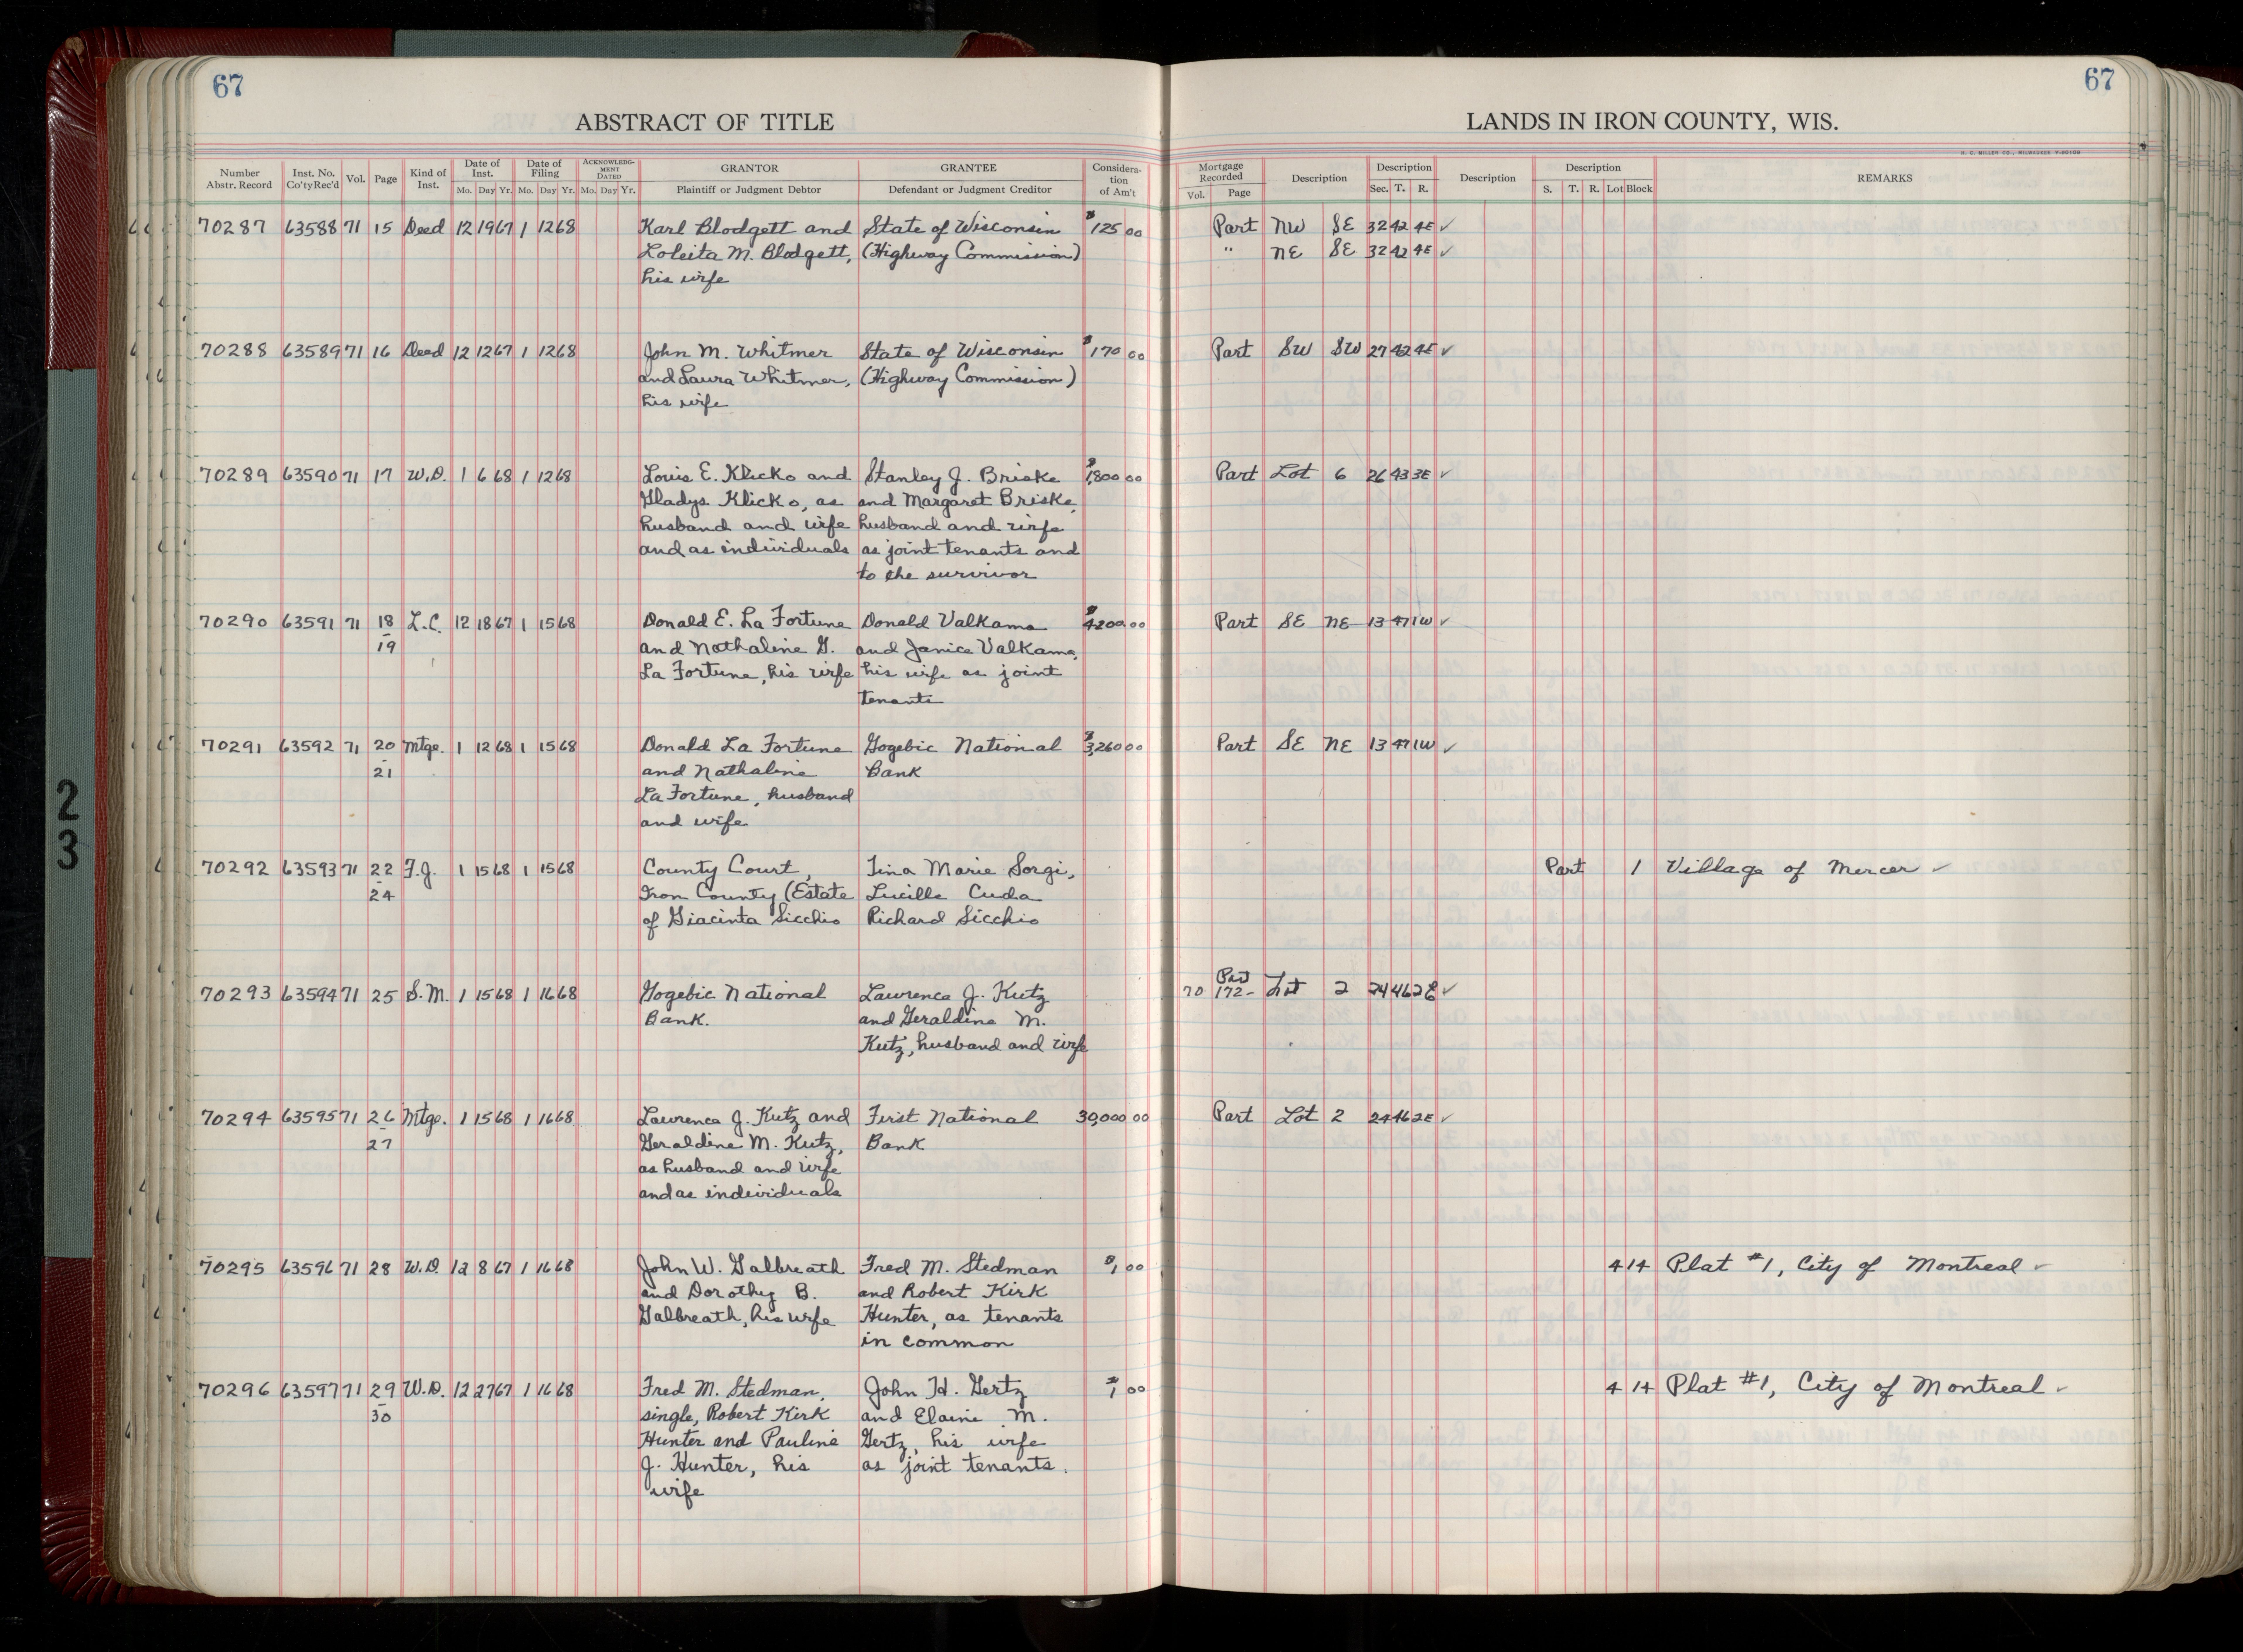 67
67
ABSTRACT OF TITLE
LANDS IN IRON COUNTY, WIS.
H. C. MILLER CO., MILWAUKEE
Number Abstr. Record Inst. No. Co'ty Rec'd Vol. Page Kind of Inst. Date of Inst. Mo. Day Yr. Date of Filing Mo. Day Yr. ACKNOWLEDGMENT DATED Mo. Day Yr. GRANTOR Plaintiff or Judgment Debtor GRANTEE Defendant or Judgment Creditor Consideration of Am't
Mortgage Recorded Vol. Page Description Description Sec. T. R. Description Description S. T. R. Lot Block REMARKS
70287 63588 71 15 Deed 12 19 67 1 12 68 Karl Blodgett and State of Wisconsin $125 00 Part NW SE 32 42 4E ✓
Loleita M. Blodgett, (Highway Commission) " NE SE 32 42 4E ✓
his wife
70288 63589 71 16 Deed 12 12 67 1 12 68 John M. Whitmer State of Wisconsin $170 00 Part SW SW 27 42 4E ✓
and Laura Whitmer, (Highway Commission)
his wife
70289 63590 71 17 W.D. 1 6 68 1 12 68 Louis E. Klicko and Stanley J. Briske $1,800 00 Part Lot 6 26 43 3E ✓
Gladys Klicko, as and Margaret Briske,
husband and wife husband and wife
and as individuals as joint tenants and
to the survivor
70290 63591 71 18 L.C. 12 18 67 1 15 68 Donald E. La Fortune Donald Valkama $4200.00 Part SE NE 13 47 1W ✓
- 19 and Nathaline G. and Janice Valkama,
La Fortune, his wife his wife as joint
tenants
70291 63592 71 20 Mtge. 1 12 68 1 15 68 Donald La Fortune Gogebic National $3,260 00 Part SE NE 13 47 1W ✓
- 21 and Nathaline Bank
La Fortune, husband
and wife
70292 63593 71 22 F.J. 1 15 68 1 15 68 County Court, Tina Marie Sorgi, Part 1 Village of Mercer ✓
- 24 Iron County (Estate Lucille Cuda
of Giacinta Sicchio Richard Sicchio
70293 63594 71 25 S.M. 1 15 68 1 16 68 Gogebic National Lawrence J. Kutz 70 172- Lot 2 24 46 2E ✓
Bank. and Geraldine M.
Kutz, husband and wife
70294 63595 71 26 Mtge. 1 15 68 1 16 68 Lawrence J. Kutz and First National 30,000 00 Part Lot 2 24 46 2E ✓
- 27 Geraldine M. Kutz, Bank
as husband and wife
and as individuals
70295 63596 71 28 W.D. 12 8 67 1 16 68 John W. Galbreath Fred M. Stedman $1 00 4 14 Plat #1, City of Montreal ✓
and Dorothy B. and Robert Kirk
Galbreath, his wife Hunter, as tenants
in common
70296 63597 71 29 W.D. 12 27 67 1 16 68 Fred M. Stedman, John H. Gertz $1 00 4 14 Plat #1, City of Montreal ✓
- 30 single, Robert Kirk and Elaine M.
Hunter and Pauline Gertz, his wife
J. Hunter, his as joint tenants.
wife
2
3